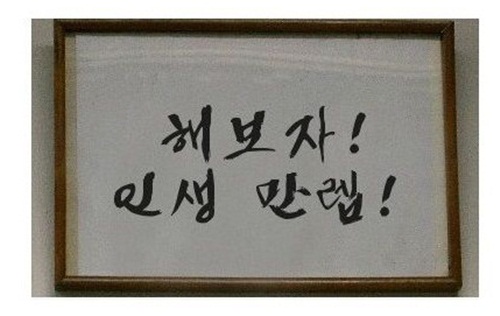 해보자!
인생 만렙!